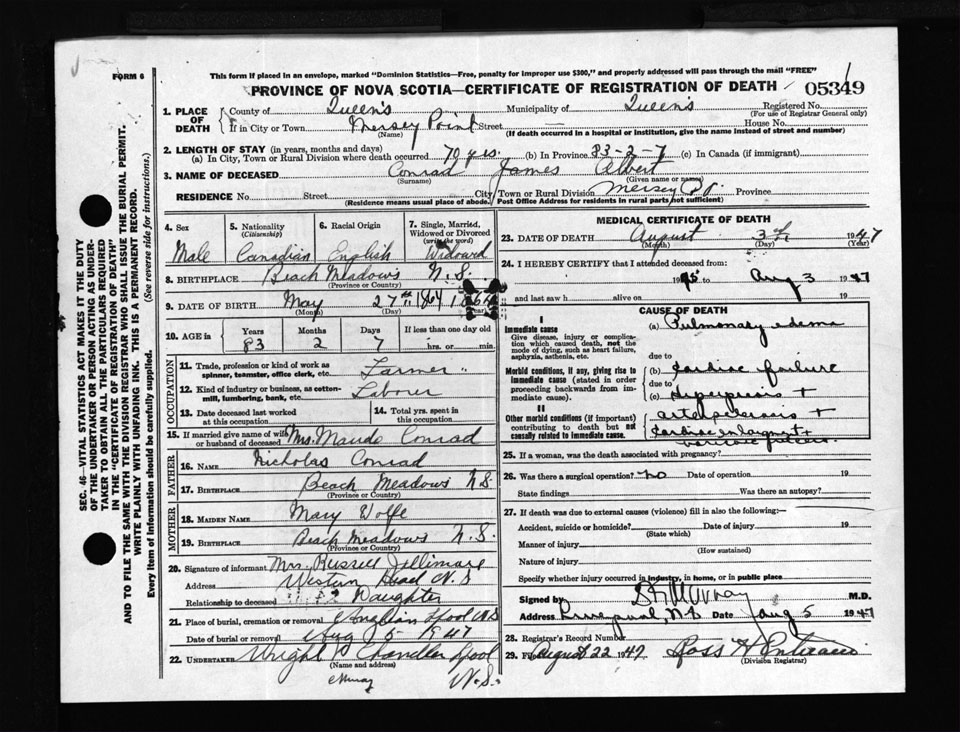 FORM 6
This form if placed in an envelope, marked "Dominion Statistics—Free, penalty for improper use $300," and properly addressed will pass through the mail "FREE"
PROVINCE OF NOVA SCOTIA—CERTIFICATE OF REGISTRATION OF DEATH 05349
SEC. 46—VITAL STATISTICS ACT MAKES IT THE DUTY
OF THE UNDERTAKER OR PERSON ACTING AS UNDER-
TAKER TO OBTAIN ALL THE PARTICULARS REQUIRED
IN THE "CERTIFICATE OF REGISTRATION OF DEATH"
AND TO FILE THE SAME WITH THE DIVISION REGISTRAR WHO SHALL ISSUE THE BURIAL PERMIT.
WRITE PLAINLY WITH UNFADING INK. THIS IS A PERMANENT RECORD.
Every item of Information should be carefully supplied. (See reverse side for instructions.)
1. PLACE OF DEATH County of Queen's Municipality of Queen's Registered No.
(For use of Registrar General only)
If in City or Town Mersey Point Street — House No.
(Name) (If death occurred in a hospital or institution, give the name instead of street and number)
2. LENGTH OF STAY (in years, months and days)
(a) In City, Town or Rural Division where death occurred 70 yrs. (b) In Province 83-2-7 (c) In Canada (if immigrant)
3. NAME OF DECEASED Conrad James Albert
(Surname) (Given name or names)
RESIDENCE No. Street City, Town or Rural Division Mersey Pt. Province
(Residence means usual place of abode. Post Office Address for residents in rural parts not sufficient)
4. Sex 5. Nationality (Citizenship) 6. Racial Origin 7. Single, Married, Widowed or Divorced (write the word)
Male Canadian English Widowed
8. BIRTHPLACE Beach Meadows N.S.
(Province or Country)
9. DATE OF BIRTH May 27th 1864 1864
(Month) (Day) (Year)
10. AGE in Years Months Days If less than one day old
83 2 7 hrs. or min.
OCCUPATION
11. Trade, profession or kind of work as spinner, teamster, office clerk, etc. Farmer
12. Kind of industry or business, as cotton-mill, lumbering, bank, etc. Laborer
13. Date deceased last worked at this occupation 14. Total yrs. spent in this occupation
15. If married give name of wife or husband of deceased Mrs. Maude Conrad
FATHER
16. NAME Nicholas Conrad
17. BIRTHPLACE Beach Meadows N.S.
(Province or Country)
MOTHER
18. MAIDEN NAME Mary Wolfe
19. BIRTHPLACE Beach Meadows N.S.
(Province or Country)
20. Signature of informant Mrs. Russell
Address Western Head N.S
Relationship to deceased Daughter
21. Place of burial, cremation or removal Lpool N.S
Date of burial or removal Aug 5 - 1947
22. UNDERTAKER Wright Chandler Lpool
(Name and address)
N.S.
MEDICAL CERTIFICATE OF DEATH
23. DATE OF DEATH August 3rd 1947
(Month) (Day) (Year)
24. I HEREBY CERTIFY that I attended deceased from:
1945 to Aug 3 1947
and last saw h alive on 19
CAUSE OF DEATH
I
Immediate cause (a) Pulmonary edema
Give disease, injury or complication which caused death, not the mode of dying, such as heart failure, asphyxia, asthenia, etc.
due to
Morbid conditions, if any, giving rise to immediate cause (stated in order proceeding backwards from immediate cause). (b) Cardiac failure
due to
(c)
II
Other morbid conditions (if important) contributing to death but not causally related to immediate cause. arteriosclerosis +
Cardiac enlargement +
25. If a woman, was the death associated with pregnancy?
26. Was there a surgical operation? no Date of operation 19
State findings Was there an autopsy?
27. If death was due to external causes (violence) fill in also the following:—
Accident, suicide or homicide? Date of injury 19
(State which)
Manner of injury
(How sustained)
Nature of injury
Specify whether injury occurred in industry, in home, or in public place
Signed by Murray M.D.
Address Liverpool, N.S Date Aug 5 1947
28. Registrar's Record Number
29. Filed August 22 1947 Ross H
(Division Registrar)